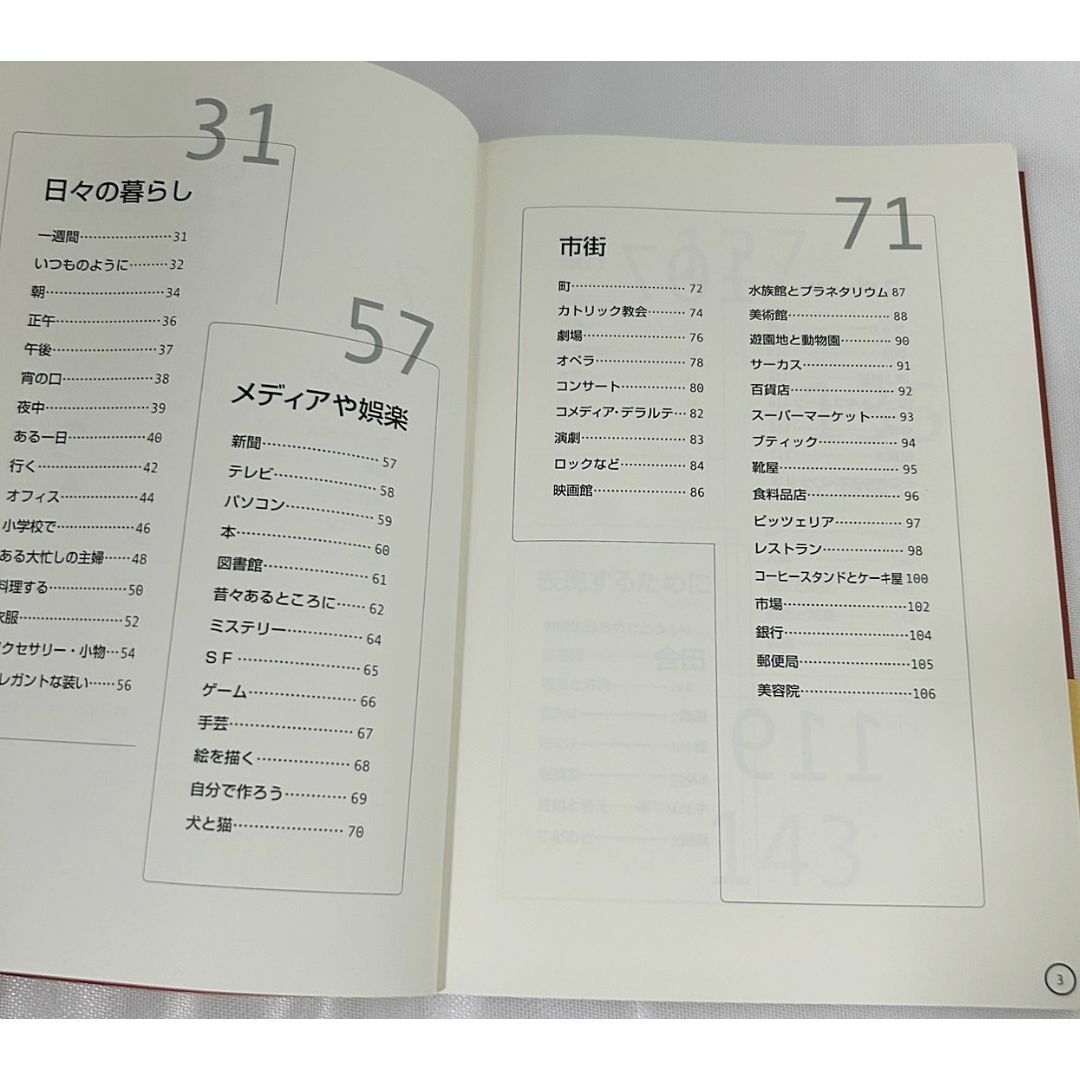 31
日々の暮らし
一週間…………………31
いつものように………32
朝………………………34
正午……………………36
午後……………………37
宵の口…………………38
夜中……………………39
ある一日………………40
行く……………………42
オフィス………………44
小学校で………………46
ある大忙しの主婦……48
料理する………………50
衣服……………………52
クセサリー・小物…54
レガントな装い……56
57
メディアや娯楽
新聞……………………57
テレビ…………………58
パソコン………………59
本………………………60
図書館…………………61
昔々あるところに……62
ミステリー……………64
ＳＦ……………………65
ゲーム…………………66
手芸……………………67
絵を描く………………68
自分で作ろう…………69
犬と猫…………………70
71
市街
町………………………72
カトリック教会………74
劇場……………………76
オペラ…………………78
コンサート……………80
コメディア・デラルテ…82
演劇……………………83
ロックなど……………84
映画館…………………86
水族館とプラネタリウム 87
美術館…………………88
遊園地と動物園………90
サーカス………………91
百貨店…………………92
スーパーマーケット……93
ブティック……………94
靴屋……………………95
食料品店………………96
ピッツェリア…………97
レストラン……………98
コーヒースタンドとケーキ屋 100
市場……………………102
銀行……………………104
郵便局…………………105
美容院…………………106
3